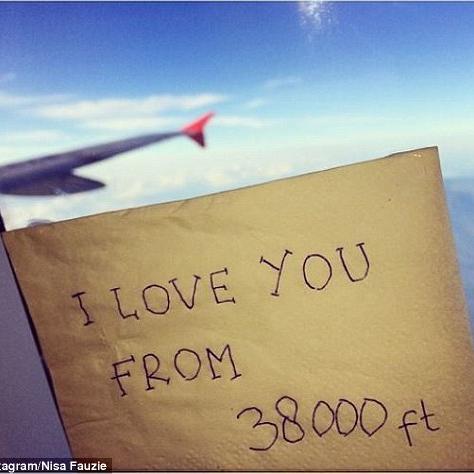 I LOVE YOU
FROM
38000 ft
tagram/Nisa Fauzie